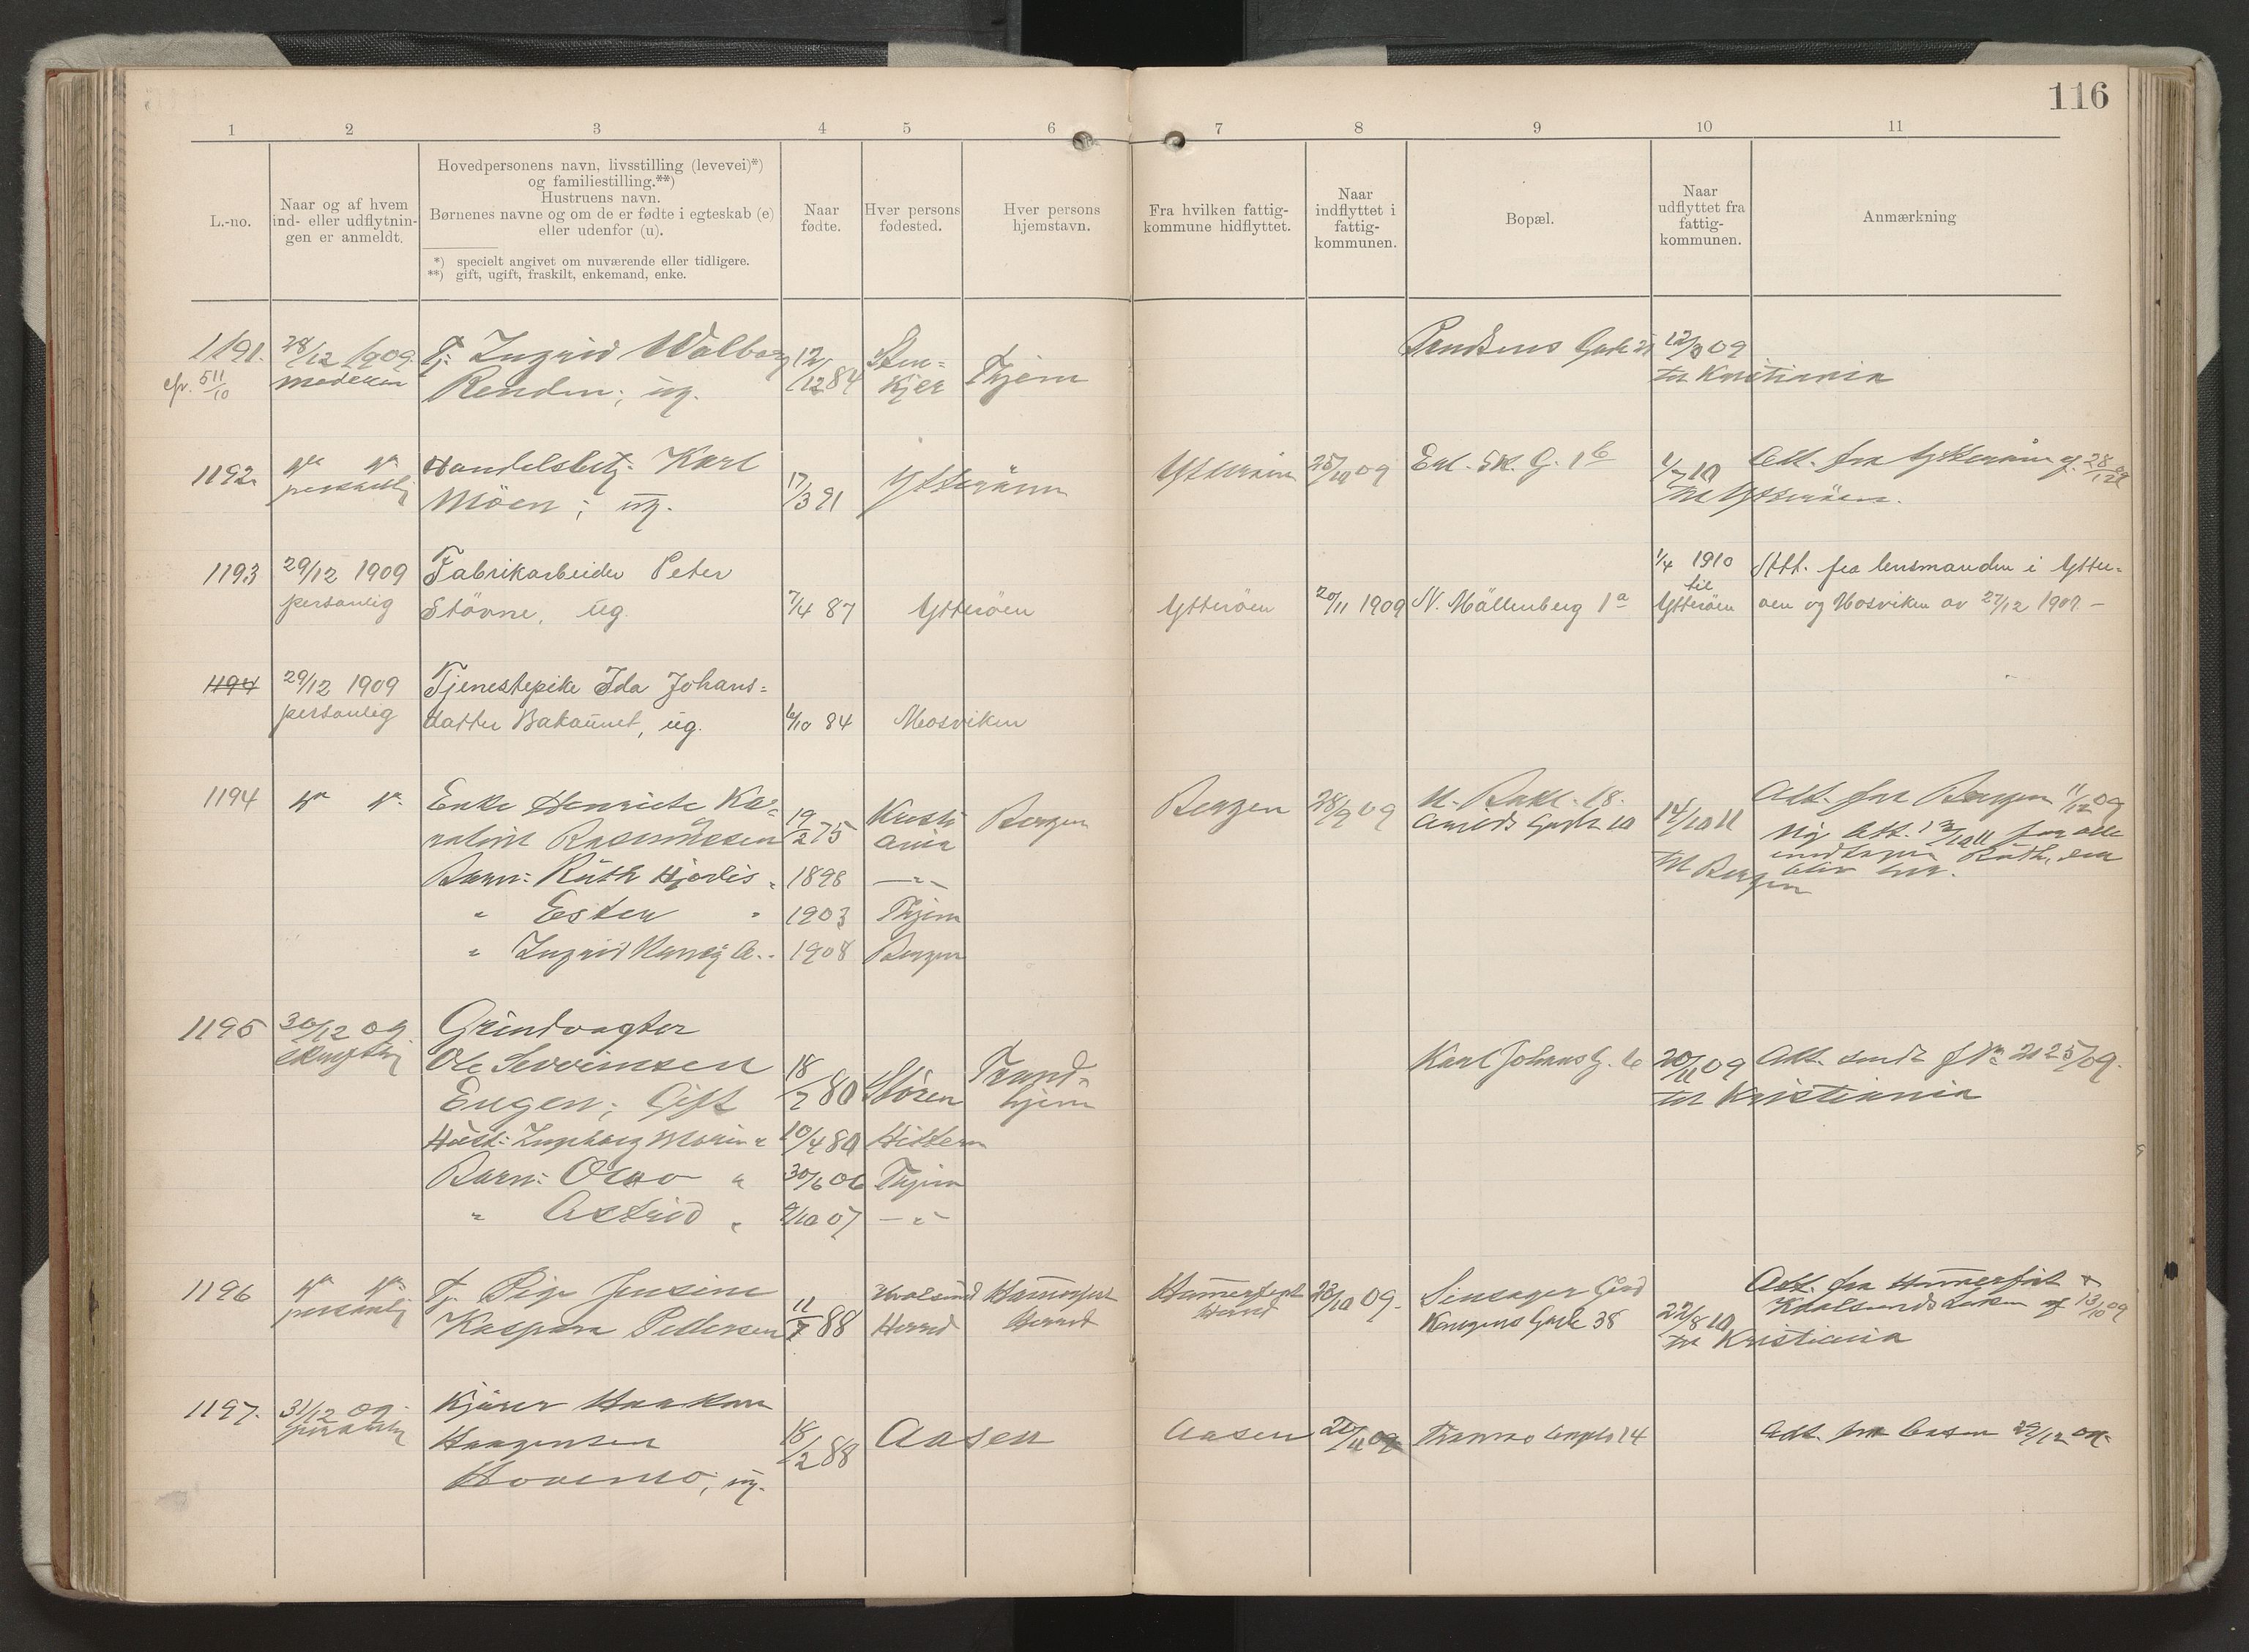 116
1 2 3 4 5 6 7 8 9 10 11
L.-no.
Naar og af hvem
ind- eller udflytnin-
gen er anmeldt.
Hovedpersonens navn, livsstilling (levevei)*)
og familiestilling.**)
Hustruens navn.
Børnenes navne og om de er fødte i egteskab (e)
eller udenfor (u).
*) specielt angivet om nuværende eller tidligere.
**) gift, ugift, fraskilt, enkemand, enke.
Naar
fødte.
Hver persons
fødested.
Hver persons
hjemstavn.
Fra hvilken fattig-
kommune hidflyttet.
Naar
indflyttet i
fattig-
kommunen.
Bopæl.
Naar
udflyttet fra
fattig-
kommunen.
Anmærkning
1191. 28/12 1909. Tj: Ingrid Walborg 12/12 84 Sten= Gade 21 12/3 09
cfr. 511/10 Renden; ug. kjer Thjem til Kristiania
1192 Handelsbetj: Karl
personlig Möen; ug. 17/3 91 Ytterøen Ytterøen 25/10 09 1b 1/7 10 Att. fra Ytterøen af 28/12 09
til Ytterøen.
1193 29/12 1909 Fabrikarbeider Peter 1/4 1910 Att. fra lensmanden i Ytter-
personlig Stövne, ug. 7/4 87 Ytteröen Ytteröen 20/11 1909 N. Möllenberg 1a til Ytteröen öen og Mosviken av 27/12 1909 –
1194 29/12 1909 Tjenestepike Ida Johans=
personlig datter Bakaunet, ug. 6/10 84 Mosviken
1194 Enke Henriete Ka=
roline Rasmussen 19/2 75 Kristi Bergen Bergen 28/9 09 14/10 11 Att. fra Bergen 11/12 09
ania Ny Att. 13/10 11 for alle
Barn: Ruth Hjördis " 1898 —"— til Bergen undtagen Ruth, som
blir her.
" Ester " 1903 Thjem
" Ingrid 1908 Bergen
1195 30/12 09 Grindvagter
Ole Severinsen 18/7 80 Støren Trond-
hjem Karl Johans G. 20/11 09 Att. sendt 09.
Eugen; Gift til Kristiania
Hust: Ingeborg Marie " 10/4 80 Hittern
Barn: " 30/6 06 Thjem
" Astrid " 9/10 07 —"—
1196 Tj. Jensine Kvalsund Hammerfest Hammerfest 23/10 09. Gård Att. fra Hammerfest
personlig Kaspara Pedersen 11/7 88 Herred Herred Herred Kongens Gade 38 22/8 10 Kvalsunds af 13/10 09
til Kristiania
1197. 31/12 09. Kjører Haakon
personlig Haagensen 18/2 88 Aasen Aasen 14 Att. fra Aasen 29/12 09.
Hovemo, ug.